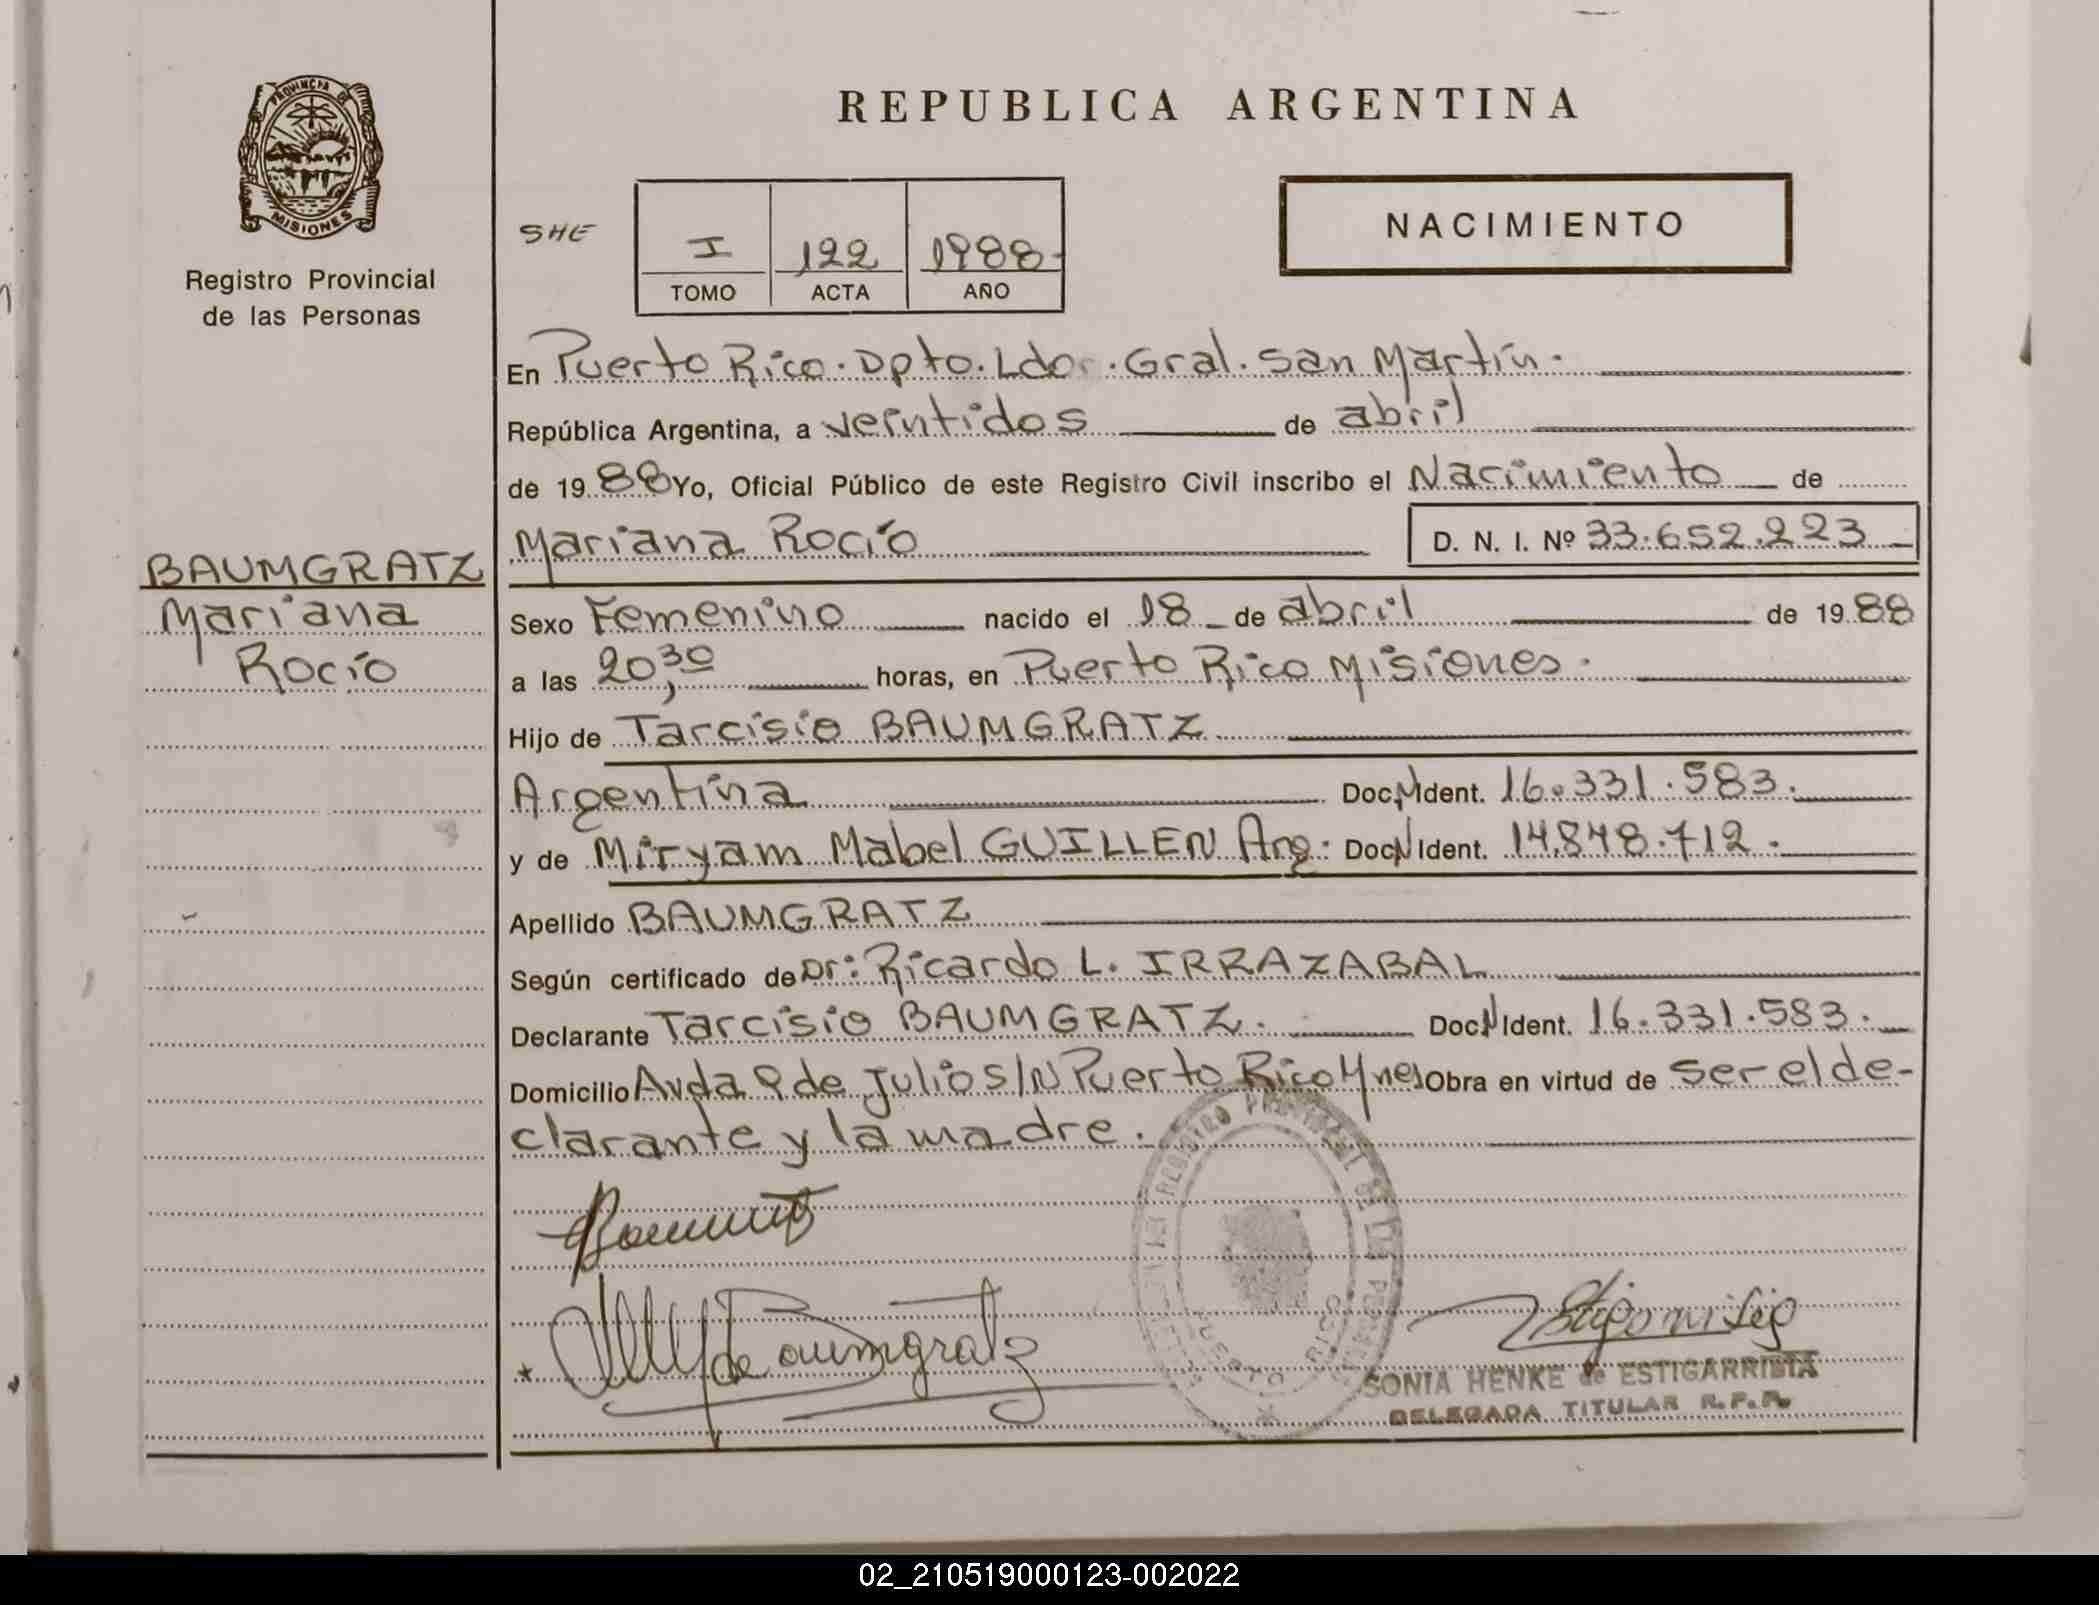 PROVINCIA DE
MISIONES
Registro Provincial
de las Personas
REPUBLICA ARGENTINA
SHE
I 122 1988.
TOMO ACTA AÑO
NACIMIENTO
En Puerto Rico. Dpto. Ldor. Gral. San Martín.
República Argentina, a veintidos de abril
de 1988 Yo, Oficial Público de este Registro Civil inscribo el Nacimiento de
Mariana Rocío D. N. I. Nº 33.652.223
BAUMGRATZ
Mariana
Rocío
Sexo Femenino nacido el 18 de abril de 1988
a las 20,30 horas, en Puerto Rico Misiones.
Hijo de Tarcisio BAUMGRATZ
Argentina Doc.N Ident. 16.331.583.
y de Miryam Mabel GUILLEN Arg. Doc.N Ident. 14.848.712.
Apellido BAUMGRATZ
Según certificado de Dr: Ricardo L. IRRAZABAL
Declarante Tarcisio BAUMGRATZ. Doc.N Ident. 16.331.583.
Domicilio Avda 9 de Julio S/N Puerto Rico Mnes Obra en virtud de ser el de-
clarante y la madre.
REGISTRO PROVINCIAL DE LAS PERSONAS
PUERTO RICO
de Baumgratz
SONIA HENKE de ESTIGARRIBIA
DELEGADA TITULAR R.P.P.
02_210519000123-002022